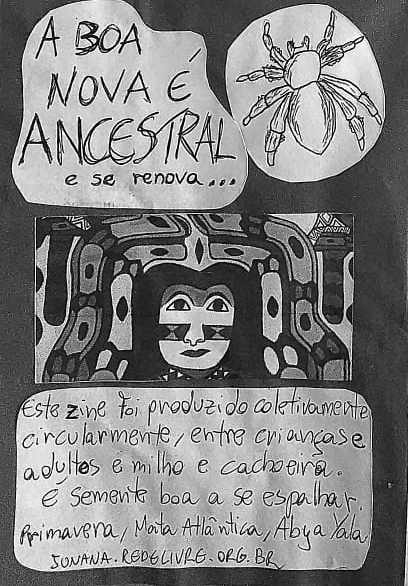 A BOA
NOVA É
ANCESTRAL
e se renova...
Este zine foi produzido coletivamente
circularmente, entre crianças e
adultos e milho e cachoeira.
É semente boa a se espalhar.
Primavera, Mata Atlântica, Abya Yala
JUNANA.REDELIVRE.ORG.BR